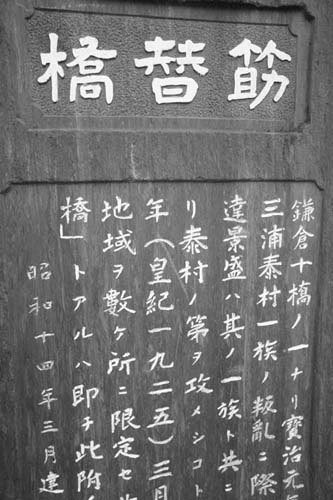 筋替橋
鎌倉十橋ノ一ナリ寶治元
三浦泰村一族ノ叛亂ニ際
達景盛ハ其ノ一族ト共ニ
リ泰村ノ第ヲ攻メシコト
年（皇紀一九二五）三月
地域ヲ數ケ所ニ限定セ
橋」トアルハ即チ此附
昭和十四年三月建